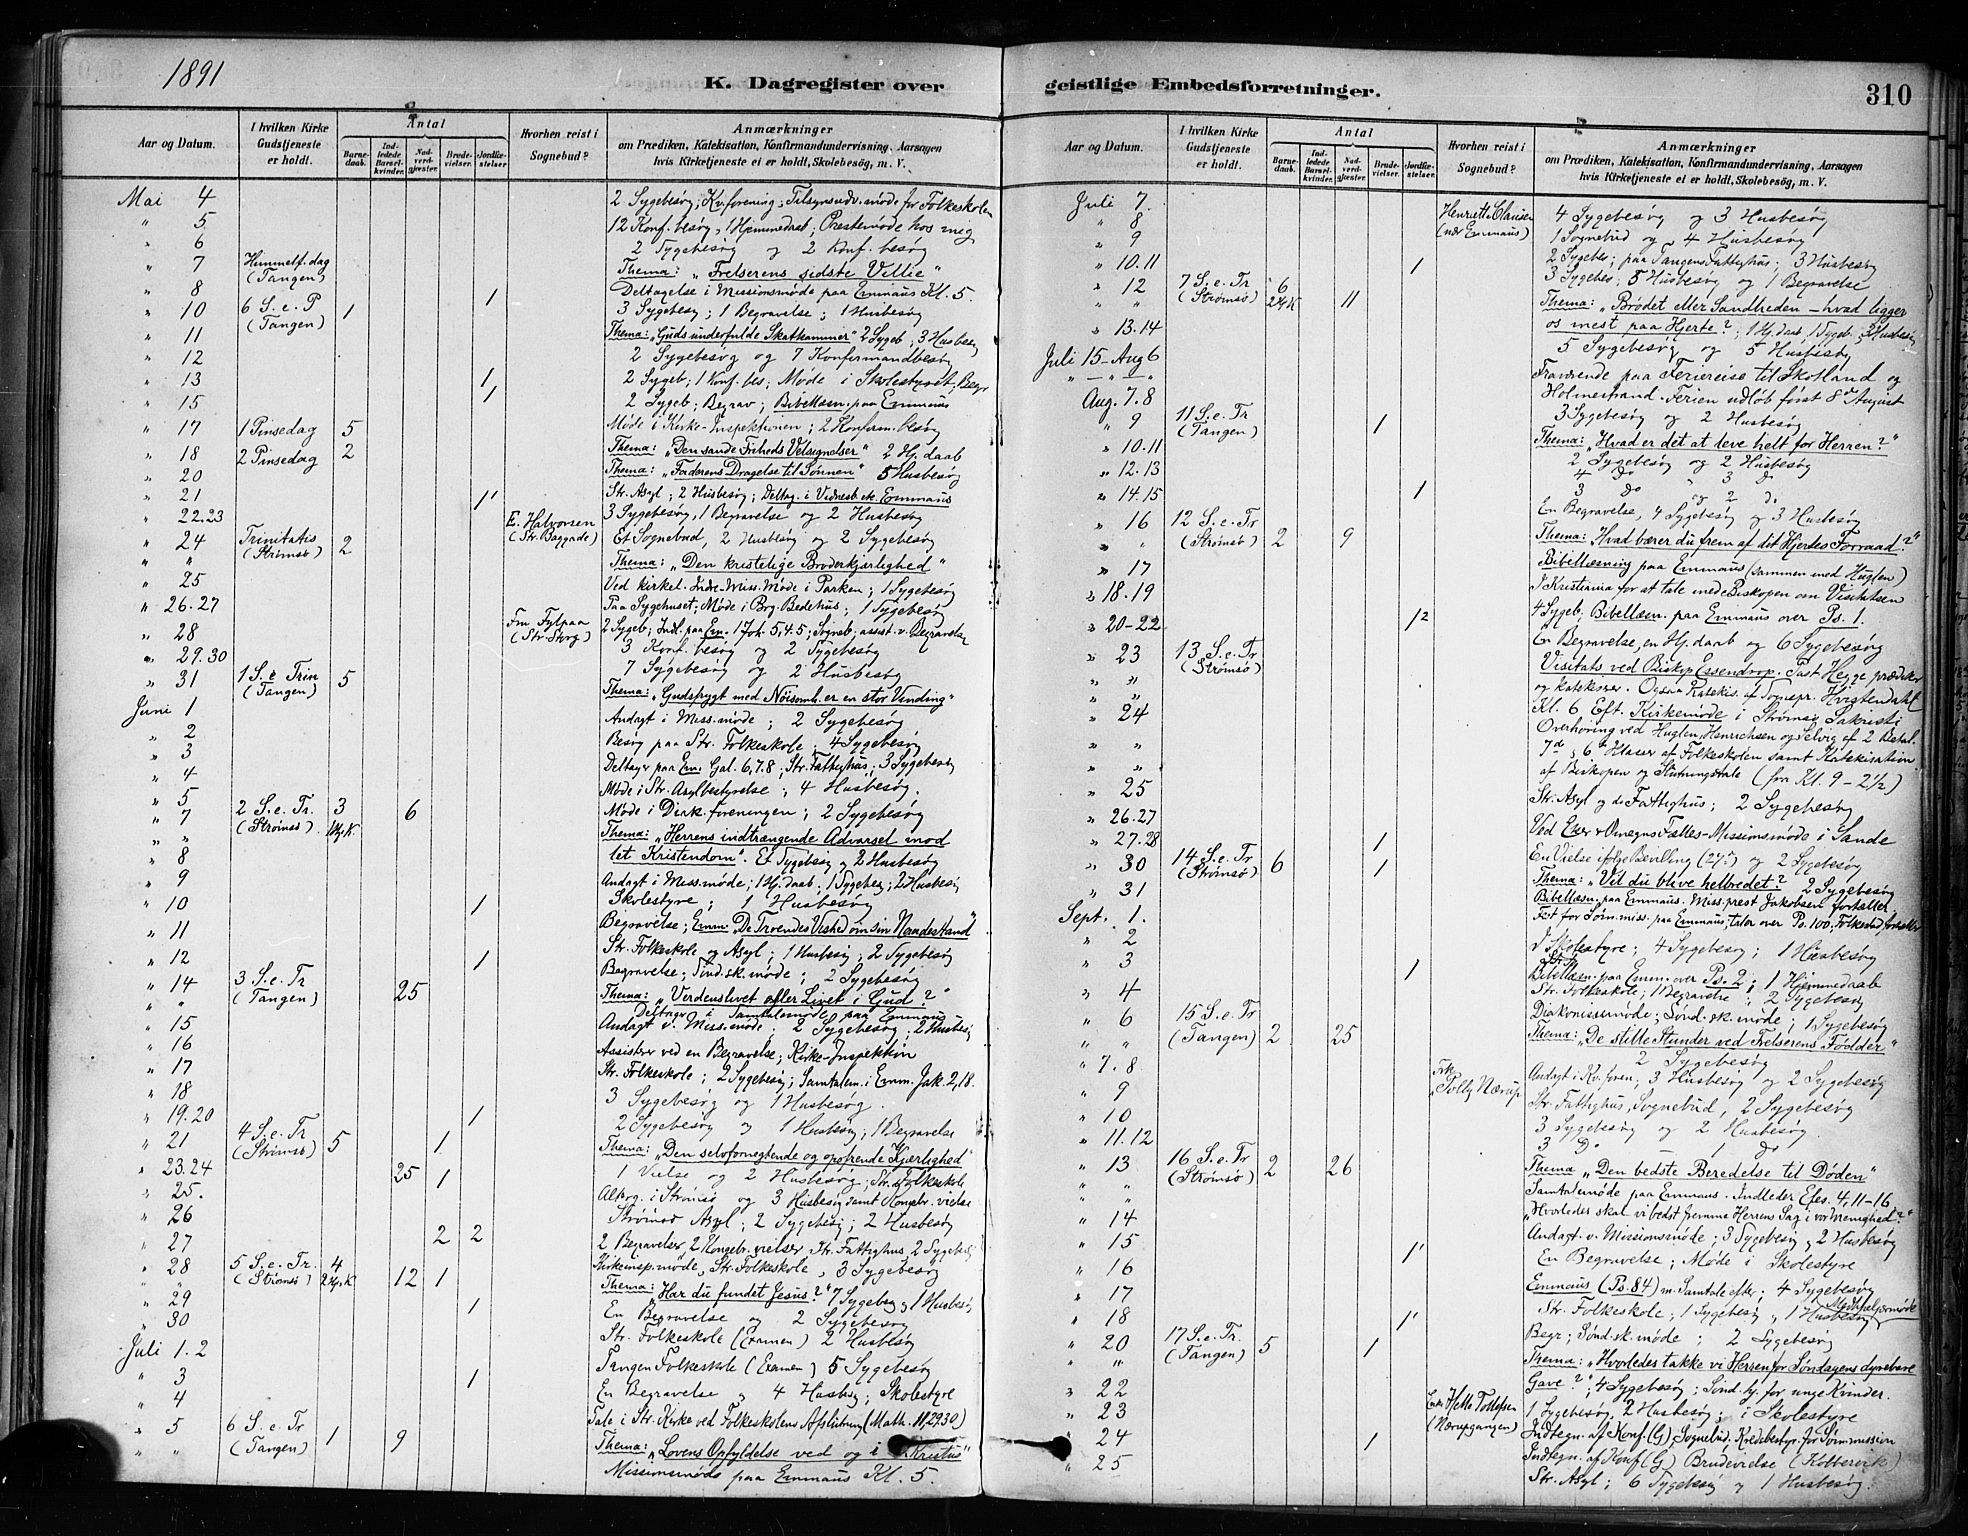 1891
K. Dagregister over
geistlige Embedsforretninger.
310
Aar og Datum.
I hvilken Kirke Gudstjeneste er holdt.
Antal
Barnedaab.
Indledede Barselkvinder.
Nadverdgjester.
Brudevielser.
Jordfæstelser
Hvorhen reist i Sognebud?
Anmærkninger
om Prædiken, Katekisation, Konfirmandundervisning, Aarsagen
hvis Kirketjeneste ei er holdt, Skolebesøg, m. V.
Mai 4 2 Sygebesøg; Kv.forening; Tilsynsudv.møde for Folkeskolen
" 5 12 Konf. besøg, 1 Hjemmedaab; Prestemøde hos meg
" 6 2 Sygebesøg og 2 Konf. besøg
" 7 Himmelf. dag (Tangen) Thema: "Frelserens sidste Villie"
" 8 1 Deltagelse i Missionsmøde paa Emmaus Kl. 5.
" 10 6 S. e. P (Tangen) 1 3 Sygebesøg; 1 Begravelse; 1 Husbesøg
" 11 Thema: "Guds underfulde Skatkammer" 2 Sygeb; 3 Husbesøg
" 12 2 Sygebesøg og 7 Konfirmandbesøg
" 13 1 2 Sygeb; 1 Konf. bes; Møde i Skolestyret; Begr
" 15 1 2 Sygeb; Begrav; Bibellæsn. paa Emmaus
" 17 1 Pinsedag 5 Møde i Kirke-Inspektionen; 2 Konferm. besøg
" 18 2 Pinsedag 2 Thema: "Den sande Friheds Velsignelser" 2 Hj. daab
" 20 Thema: "Faderens Dragelse til Sønnen" 5 Husbesøg
" 21 1 Str. Asyl; 2 Husbesøg; Deltag. i Vidnesb. ek. Emmaus
" 22.23 E. Halvorsen 3 Sygebesøg, 1 Begravelse og 2 Husbesøg
" 24 Trinitatis (Strømsø) 2 (Str. Baggade) Et Sognebud, 2 Husbesøg og 2 Sygebesøg
" " Thema: "Den kristelige Broderkjærlighed"
" 25 Ved kirkel. Indre-Miss. Møde i Parken; 1 Sygebesøg
" 26.27 Paa Sygehuset; Møde i Brg. Bedehus; 1 Sygebesøg
" 28 2 Sygeb; Indl. paa Em. 1 Joh. 5, 4.5; Sogneb; assist. v. Begravelse
" 29.30 3 Konf. besøg og 2 Sygebesøg
" 31 1 S. e Trin (Tangen) 5 7 Sygebesøg og 2 Husbesøg
Thema: "Gudsfrygt med Nøisomh. er en stor Vinding"
Juni 1 Andagt i Miss.møde; 2 Sygebesøg
" 2 Besøg paa Str. Folkeskole; 4 Sygebesøg
" 3 Deltager paa Em. Gal. 6, 7.8; Str. Fattighus, 3 Sygebesøg
" 4 Møde i Str. Asylbestyrelse; 4 Husbesøg.
" 5 Møde i Diak. foreningen; 2 Sygebesøg
" 7 2 S. e. Tr. (Strømsø) 3 6 Thema: "Herrens indtrængende Advarsel mod
" " let Kristendom". Et Sygebesøg og 2 Husbesøg
" 8 Andagt i Miss.møde; 1 Hj. daab; 1 Sygebes; 2 Husbesøg
" 9 Skolestyre; 1 Husbesøg
" 10 1 Begravelse; Emm. De Troendes Vished om sin Naadestand
" 11 Str. Folkeskole og Asyl; 1 Husbesøg; 2 Sygebesøg
" 12 1 Begravelse; Sønd.sk. møde; 2 Sygebesøg
" 14 3 S. e. Tr (Tangen) 25 Thema: "Verdenslivet eller Livet i Gud?"
" " Deltager i Samtalemøde paa Emmaus
" 15 Andagt v. Miss.møde; 2 Sygebesøg; 2 Husbesøg
" 16 Assisterer ved en Begravelse; Kirke-Inspektion
" 17 Str. Folkeskole; 2 Sygebesøg; Samtalem. i Emm. Jak. 2, 18.
" 18 3 Sygebesøg og 1 Husbesøg.
" 19.20 1 2 Sygebesøg og 1 Husbesøg; 1 Begravelse
" 21 4 S. e. Tr (Strømsø) 5 1 Thema: "Den selvfornegtende og opofrende Kjærlighed"
" 23.24 25 1 1 Vielse og 2 Husbesøg; Str. Folkeskole
" 25. Alterg. i Strømsø og 3 Husbesøg samt Kongebr. vielse
" 26 Strømsø Asyl; 2 Sygebesøg; 2 Husbesøg
" 27 2 2 2 Begravelser, 2 Kongebr. vielser, Str. Fattighus, 2 Sygebes.
" 28 5 S. e. Tr. (Strømsø) 4 12 1 Kirkeinsp. møde, Str. Folkeskole, 3 Sygebesøg
" " Thema: "Har du fundet Jesus?" 7 Sygebesøg og 1 Husbesøg
" 29 1 En Begravelse og 2 Sygebesøg
" 30 Str. Folkeskole (Examen) 2 Husbesøg
Juli 1.2 Tangen Folkeskole (Examen) 5 Sygebesøg
" 3 1 En Begravelse og 4 Husbesøg; Skolestyre
" 4 Tale i Str. Kirke ved Folkeskolens Afslutning (Math. 11, 29.30)
" 5 6 S. e. Tr (Tangen) 1 9 Thema: "Lovens Opfyldelse ved og i Kristus"
" " Missionsmøde paa Emmaus Kl. 5.
Aar og Datum.
I hvilken Kirke Gudstjeneste er holdt.
Antal
Barnedaab.
Indledede Barselkvinder.
Nadverdgjester.
Brudevielser.
Jordfæstelser.
Hvorhen reist i Sognebud?
Anmærkninger
om Prædiken, Katekisation, Konfirmandundervisning, Aarsagen
hvis Kirketjeneste ei er holdt, Skolebesøg, m. V.
Juli 7. Henriette Clausen 4 Sygebesøg og 3 Husbesøg
" 8 (nær Emmaus) 1 Sognebud og 4 Husbesøg
" 9 2 Sygebes; paa Tangens Fattighus; 3 Husbesøg
" 10.11 1 3 Sygebes, 5 Husbesøg og 1 Begravelse
" 12 7 S. e. Tr (Strømsø) 6 11 Thema: "Brødet eller Sandheden – hvad ligger
" " os mest paa Hjerte?; 1 Hj. daab, 1 Sygeb; 3 Husbesøg
" 13.14 5 Sygebesøg og 5 Husbesøg
Juli 15 - Aug 6 Fraværende paa Feriereise til Skotland og
" – " – " Holmestrand. Ferien udløb først 8de August
Aug. 7.8 3 Sygebesøg og 2 Husbesøg
" 9 11 S. e. Tr (Tangen) 1 Thema: "Hvad er det at leve helt for Herren?"
" 10.11 2 Sygebesøg og 2 Husbesøg
" 12.13 4 do " 3 do
" 14.15 1 3 do og 2 do
En Begravelse, 4 Sygebesøg og 3 Husbesøg
" 16 12 S. e. Tr (Strømsø) 2 9 Thema: "Hvad bærer du frem af dit Hjertes Forraad?"
" " Bibellæsning paa Emmaus (sammen med Huglen)
" 17 I Kristiania for at tale med Biskopen om Visitatsen
" 18.19 4 Sygeb, Bibellæsn. paa Emmaus over Ps. 1.
" 20-22 1 En Begravelse, en Hj. daab og 6 Sygebesøg
" 23 13 S. e. Tr (Strømsø) Visitats ved Biskop Essendrop. Past Hegge prædiker
" " og katekiserer. Også Katekis. af Sognepr. Hvistendahl
" " Kl. 6 Eft. Kirkemøde i Strømsø Sakristi
" 24 Overhøring ved Huglen, Henrichsen og Selvig af 2 Betal.
" " 7de og 6te Klasser af Folkeskolen samt Katekisation
" " af Biskopen og Slutningstale (fra Kl. 9 – 2½)
" 25 Str. Asyl og do Fattighus; 2 Sygebesøg
" 26.27 Ved Eker & Omegns Fælles-Missionsmøde i Sande
" 27.28 1 En Vielse ifølge Bevilling (27de) og 2 Sygebesøg
" 30 14 S. e. Tr (Strømsø) 6 1 Thema: "Vil du blive helbredet? 2 Sygebesøg
" 31 Bibellæsn. paa Emmaus. Miss.prest Jakobsen fortæller.
Sept. 1. Fest for Sjøm.miss. paa Emmaus, taler over Ps. 100, Folkestad fortæller
" 2 I Skolestyre; 4 Sygebesøg; 1 Husbesøg
" 3 1 Bibellæsn. paa Emm. over Ps. 2; 1 Hjemmedaab
" 4 Str. Folkeskole; 1 Begravelse; 2 Sygebesøg
" 6 15 S. e. Tr (Tangen) 2 25 Diakonissemøde; Sønd.sk. møde; 1 Sygebesøg
" " Thema: "De stille Stunder ved Frelserens Fødder"
" 7.8 2 Sygebesøg
" 9 Frk. Tolly Nærup Andagt i Kv. foren, 3 Husbesøg og 2 Sygebesøg
" 10 Str. Fattighus, Sognebud, 2 Sygebesøg
" 11.12 3 Sygebesøg og 2 Husbesøg.
3 Do 1 do
" 13 16 S. e. Tr (Strømsø) 2 26 Thema "Den bedste Beredelse til Døden"
" " Samtalemøde paa Emmaus. Indleder Efes. 4, 11-16
" " "Hvorledes skal vi bedst fremme Herrens Sag i vor Menighed?"
" 14 Andagt v. Missionsmøde; 3 Sygebesøg og 2 Husbesøg
" 15 1 En Begravelse; Møde i Skolestyre
" 16 Emmaus (Ps. 84) m. Samtale efter; 4 Sygebesøg
" 17 Str. Folkeskole; 1 Sygebesøg, 1 Husbesøg
" 18 1 Begr; Sønd.sk. møde; 2 Sygebesøg
" 20 17 S. e. Tr. (Tangen) 5 1 Thema: "Hvorledes takke vi Herren for Søndagens dyrebare
" " Gave?"; 4 Sygebesøg; Sønd. hj. for unge Kvinder.
" 22 1 Sygebesøg, 2 Husbesøg; i Skolestyre
" 23 (Nærupgangen) Indtegn. af Konf. (G), Sognebud, Kredsbestyr. for Sjømmission
" 24 1 Indtegn. af Konf. (G) Brudevielse (Kobbervik)
" 25 Str. Asyl; 6 Sygebesøg og 1 Husbesøg.